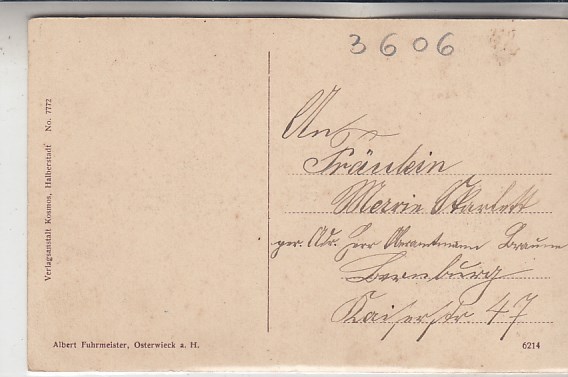 3606
Verlagsanstalt Kosmos, Halberstadt No. 7772
An
Fräulein
Merrie Skarlett
per. Adr. Herr Oberamtmann Braune
Bernburg
Kaiserstr 47
Albert Fuhrmeister, Osterwieck a. H.
6214